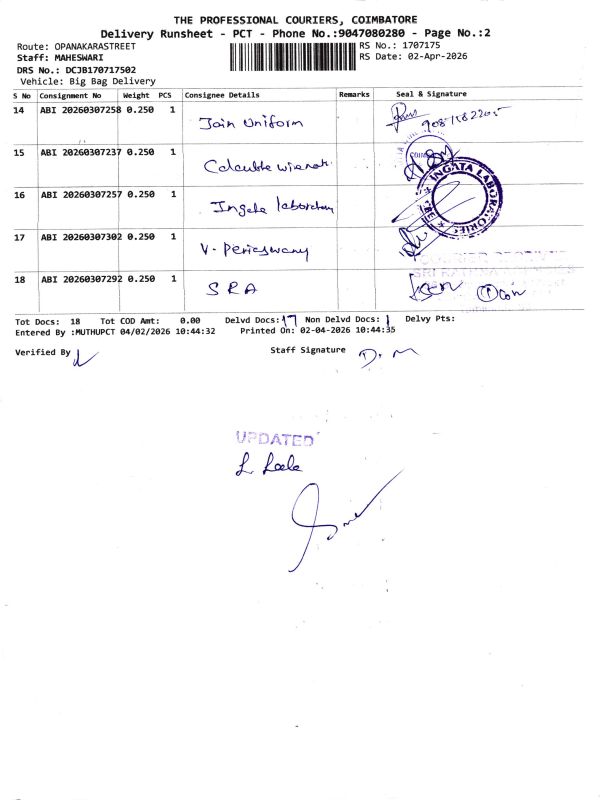 THE PROFESSIONAL COURIERS, COIMBATORE
Delivery Runsheet - PCT - Phone No.:9047080280 - Page No.:2
Route: OPANAKARASTREET
RS No.: 1707175
Staff: MAHESWARI
RS Date: 02-Apr-2026
DRS No.: DCJB170717502
Vehicle: Big Bag Delivery
S No Consignment No Weight PCS Consignee Details Remarks Seal & Signature
14 ABI 20260307258 0.250 1 Join Uniform
15 ABI 20260307237 0.250 1
16 ABI 20260307257 0.250 1 INGATA LABORATORIES
17 ABI 20260307302 0.250 1 V. Perieswamy
18 ABI 20260307292 0.250 1 SRA
Tot Docs: 18 Tot COD Amt: 0.00 Delvd Docs: 17 Non Delvd Docs: 1 Delvy Pts:
Entered By :MUTHUPCT 04/02/2026 10:44:32 Printed On: 02-04-2026 10:44:35
Verified By
Staff Signature D. M
UPDATED
L. Leela